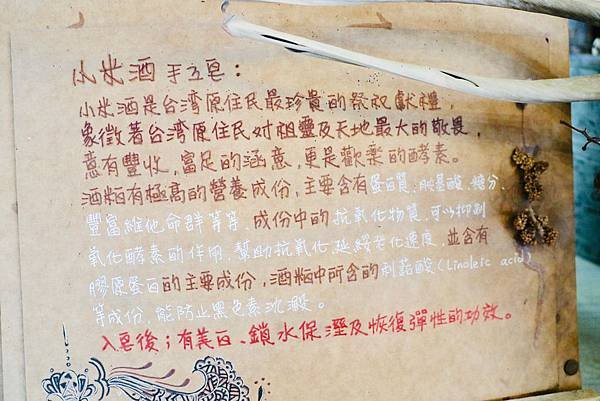 小米酒 手工皂：
小米酒是台湾原住民最珍貴的祭祀獻禮，
象徵著台湾原住民对祖靈及天地最大的敬畏，
意有豐收，富足的涵意，更是歡樂的酵素。
酒粕有極高的營養成份，主要含有蛋白質、胺基酸、糖分、
豐富維他命群等等，成份中的抗氧化物質，可以抑制
氧化酵素的作用，幫助抗氧化延緩老化速度，並含有
膠原蛋白的主要成份，酒粕中所含的亞麻油酸(Linoleic acid)
等成份，能防止黑色素沈澱。
入皂後；有美白、鎖水保溼及恢復彈性的功效。